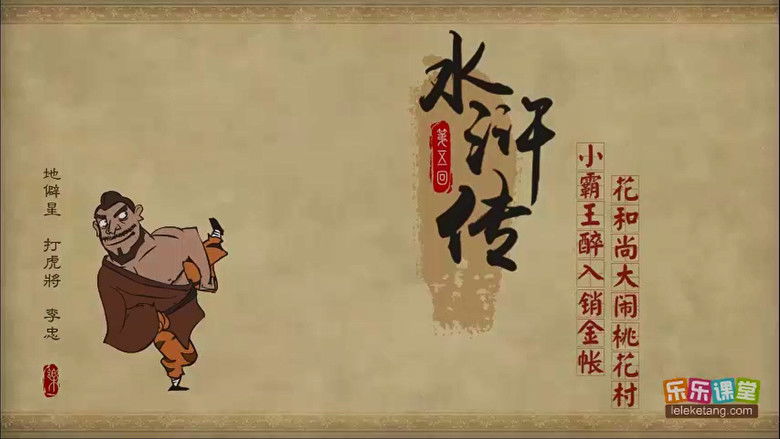 水浒传
第五回
小霸王醉入销金帐
花和尚大闹桃花村
地僻星 打虎將 李忠
乐乐课堂
leleketang.com